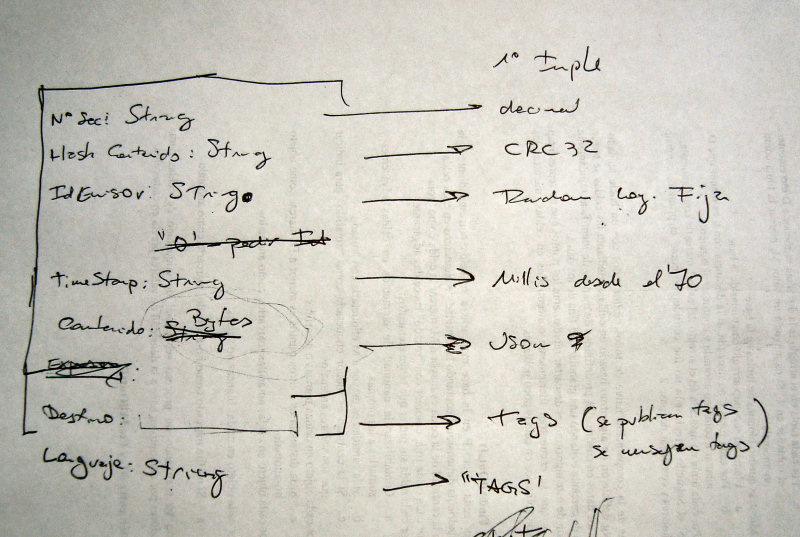 1º Imple
Nº Sec: String → decimal
Hash Contenido: String → CRC32
IdEmisor: String → Random Long. Fija
"0" - pedir Id
TimeStamp: String → Millis desde el '70
Contenido: String Bytes → JSON
Destino: → tags (se publican tags
se tags)
Lenguaje: String → "TAGS'